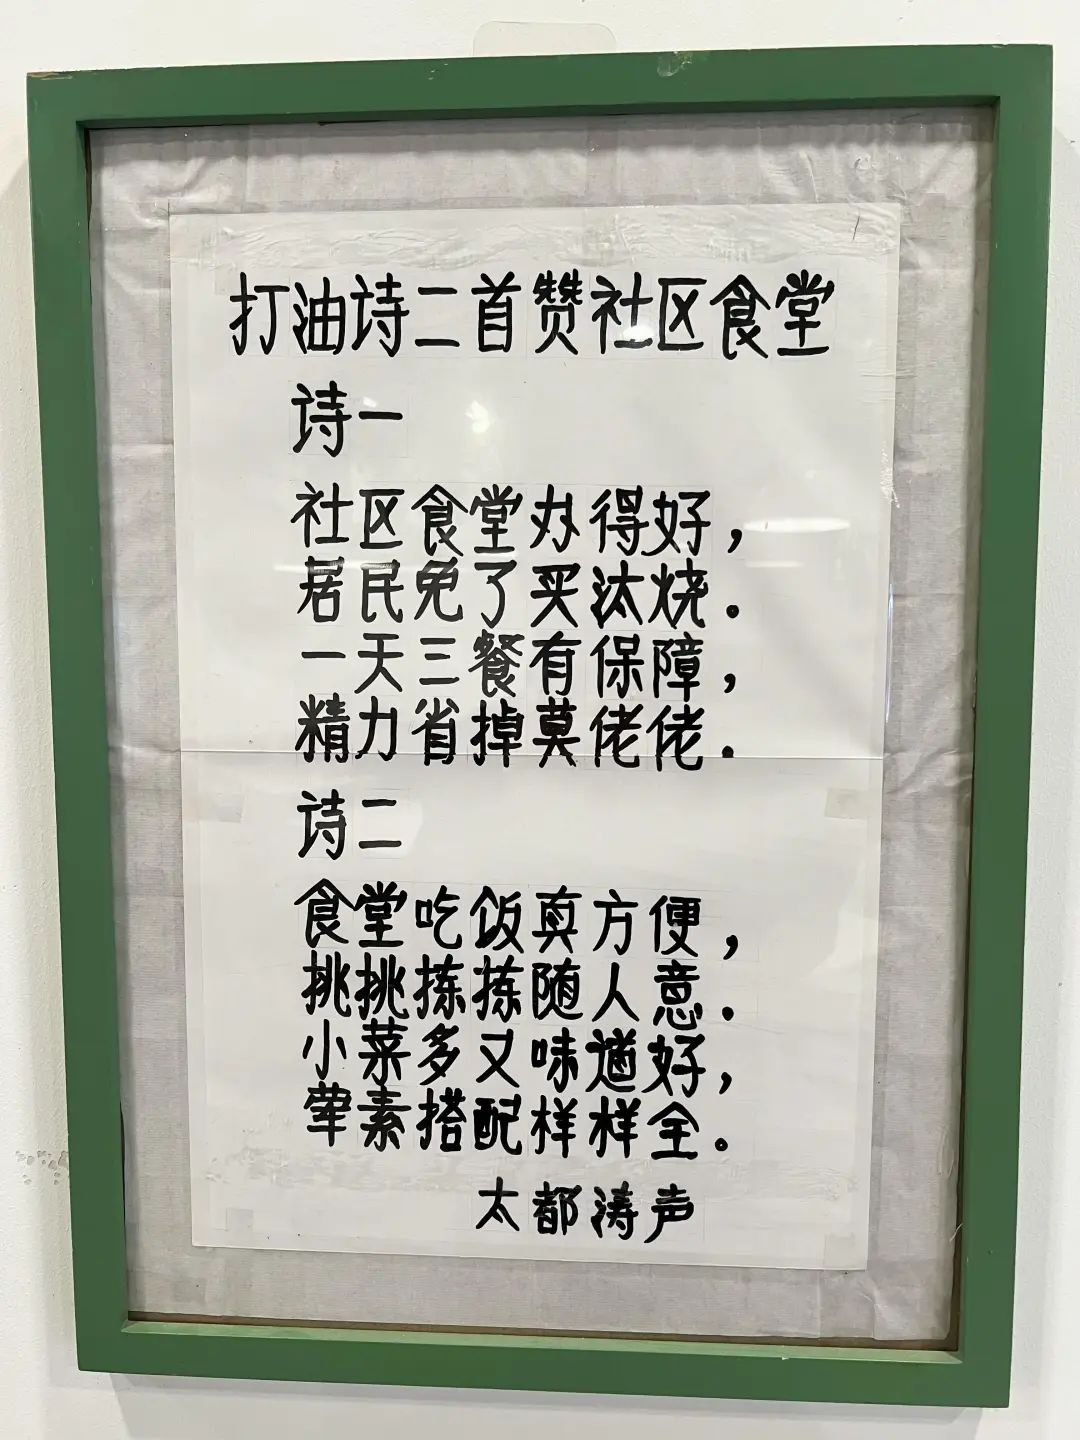 打油诗二首赞社区食堂
诗一
社区食堂办得好，
居民免了买汰烧.
一天三餐有保障，
精力省掉莫佬佬.
诗二
食堂吃饭真方便，
挑挑拣拣随人意.
小菜多又味道好，
荤素搭配样样全.
太都涛声